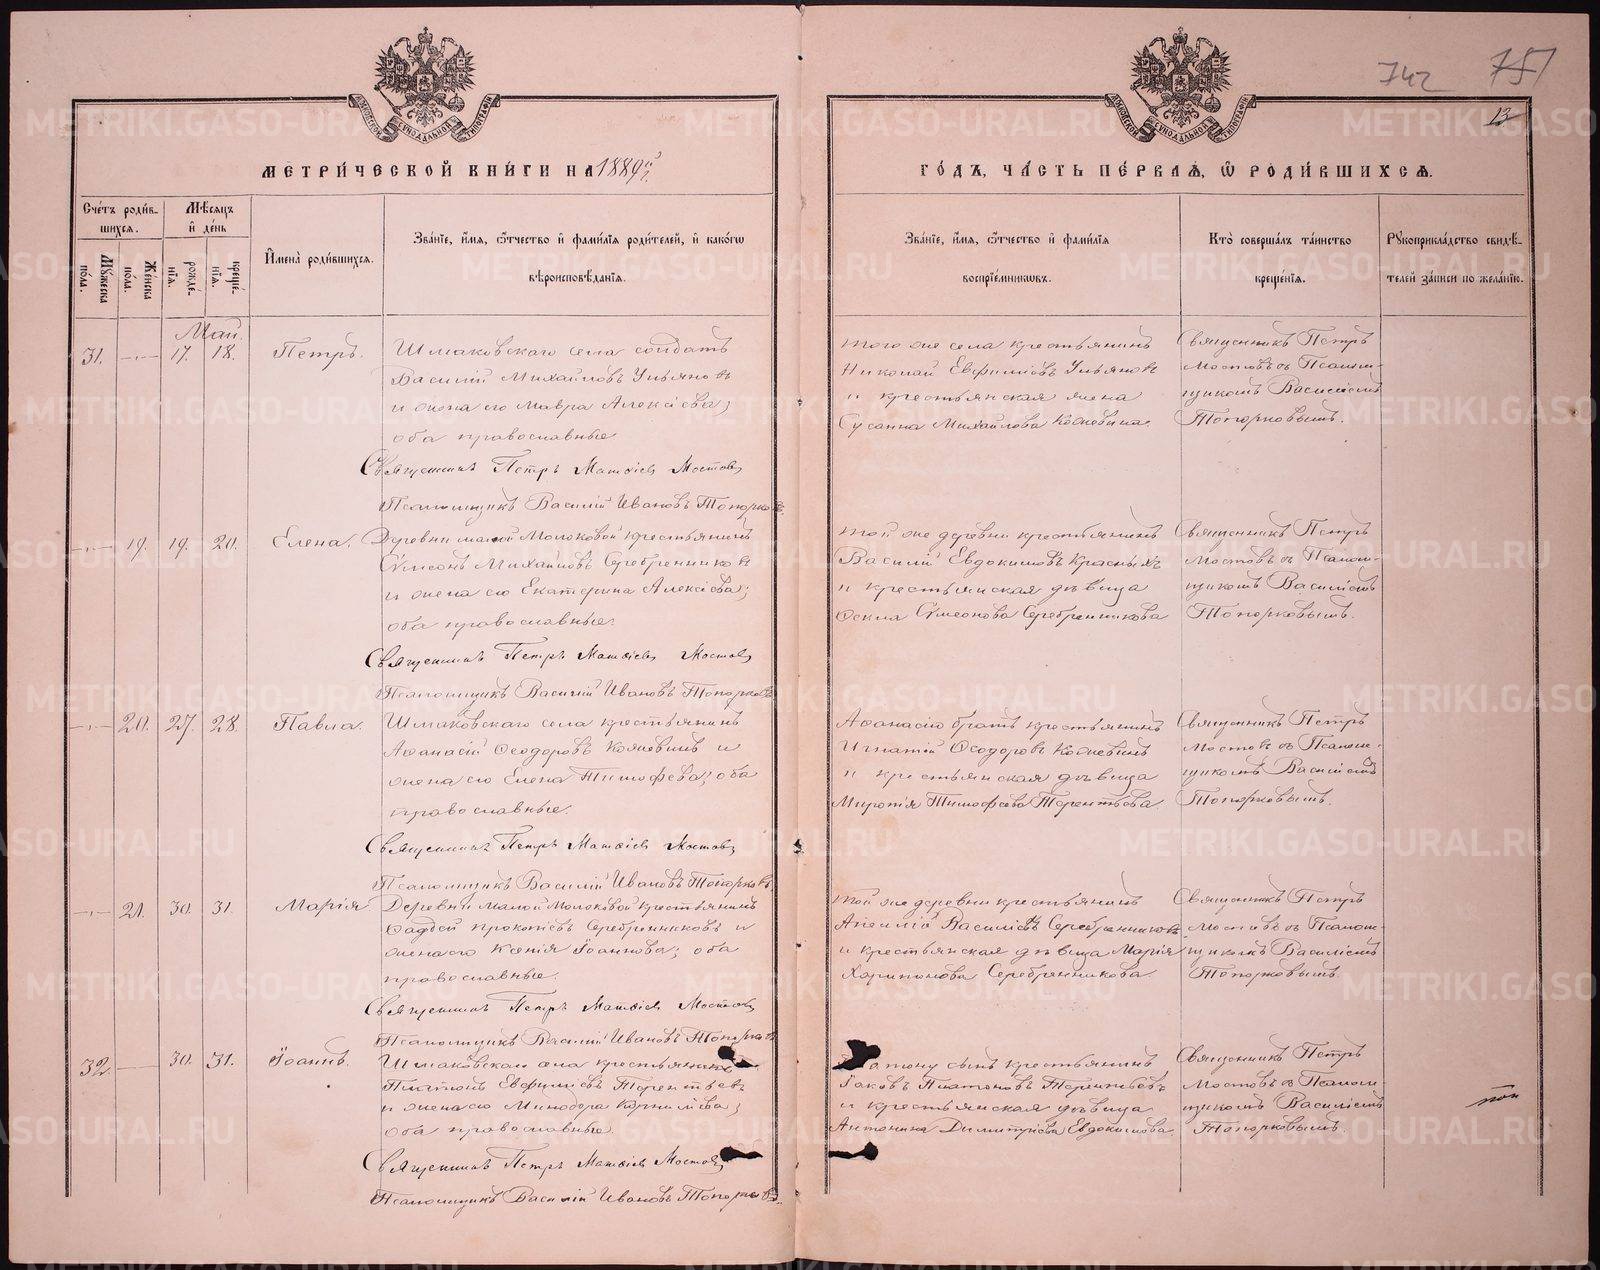 742 751
13
МЕТРИ́ЧЕСКОЙ КНИ́ГИ НА 1889й
ГО́ДЪ, ЧА́СТЬ ПЕ́РВАѦ, Ѡ РОДИ́ВШИХСѦ.
Сче́тъ роди́в-
шихся.
Мѣсяцъ
и де́нь
Мꙋ́жеска по́ла.
Же́нска по́ла.
рожде́-
нїя.
креще́-
нїя.
Имена̀ роди́вшихся.
Зва́нїе, и́мя, ѻ҆́тчество и фами́лїя роди́телей, и како́гѡ
вѣроисповѣ́данїя.
Зва́нїе, и́мя, ѻ҆́тчество и фами́лїя
воспрїе́мникѡвъ.
Кто̀ соверша́лъ та́инство
креще́нїя.
Рꙋкоприкла́дство свидѣ́-
телей за́писи по жела́нїю.
Май.
31. 17. 18. Петръ.
Шмаковскаго села солдатъ
Василій Михайловъ Ульяновъ
и жена его Мавра Алексіева;
оба православные
Священникъ Петръ Матѳіевъ Мостовъ
Псаломщикъ Василій Ивановъ Топорковъ
того же села крестьянинъ
Николай Евфиміевъ Ульяновъ
и крестьянская жена
Сусанна Михайлова
Священникъ Петръ
Мостовъ съ Псалом-
щикомъ Василіемъ
Топорковымъ.
19. 19. 20. Елена.
Деревни малой Молоковой крестьянинъ
Сѵмеонъ Михайловъ Серебренниковъ
и жена его Екатерина Алексіева;
оба православные.
Священникъ Петръ Матѳіевъ Мостовъ
Псаломщикъ Василій Ивановъ Топорковъ
той же деревни крестьянинъ
Василій Евдокимовъ Красныхъ
и крестьянская дѣвица
Сѵмеонова Серебренникова
Священникъ Петръ
Мостовъ съ Псалом-
щикомъ Василіемъ
Топорковымъ.
20. 27. 28. Павла.
Шмаковскаго села крестьянинъ
Аѳанасій Ѳеодоровъ Кожевинъ и
жена его Елена Тимофеева; оба
православные.
Священникъ Петръ Матѳіевъ Мостовъ
Псаломщикъ Василій Ивановъ Топорковъ
Аѳанасію братъ крестьянинъ
Игнатій Ѳеодоровъ Кожевинъ
и крестьянская дѣвица
Тимофеева Терентьева
Священникъ Петръ
Мостовъ съ Псалом-
щикомъ Василіемъ
Топорковымъ.
21. 30. 31. Марія
Деревни Малой Молоковой крестьянинъ
Ѳаддей Прокопіевъ Серебренниковъ и
жена его Ксенія Іоаннова; оба
православные.
Священникъ Петръ Матѳіевъ Мостовъ
Псаломщикъ Василій Ивановъ Топорковъ
той же деревни крестьянинъ
Василіевъ Серебренниковъ
и крестьянская дѣвица Марія
Харитонова Серебренникова.
Священникъ Петръ
Мостовъ съ Псалом-
щикомъ Василіемъ
Топорковымъ.
32. 30. 31. Іоаннъ.
Шмаковскаго села крестьянинъ
Платонъ Евфиміевъ Терентьевъ
и жена его Минодора Корнилова;
оба православные.
Священникъ Петръ Матѳіевъ Мостовъ
Псаломщикъ Василій Ивановъ Топорковъ
сынъ крестьянинъ
Іаковъ Платоновъ Терентьевъ
и крестьянская дѣвица
Антонина Димитріева Евдокимова
Священникъ Петръ
Мостовъ съ Псалом-
щикомъ Василіемъ
Топорковымъ.
METRIKI.GASO-URAL.RU